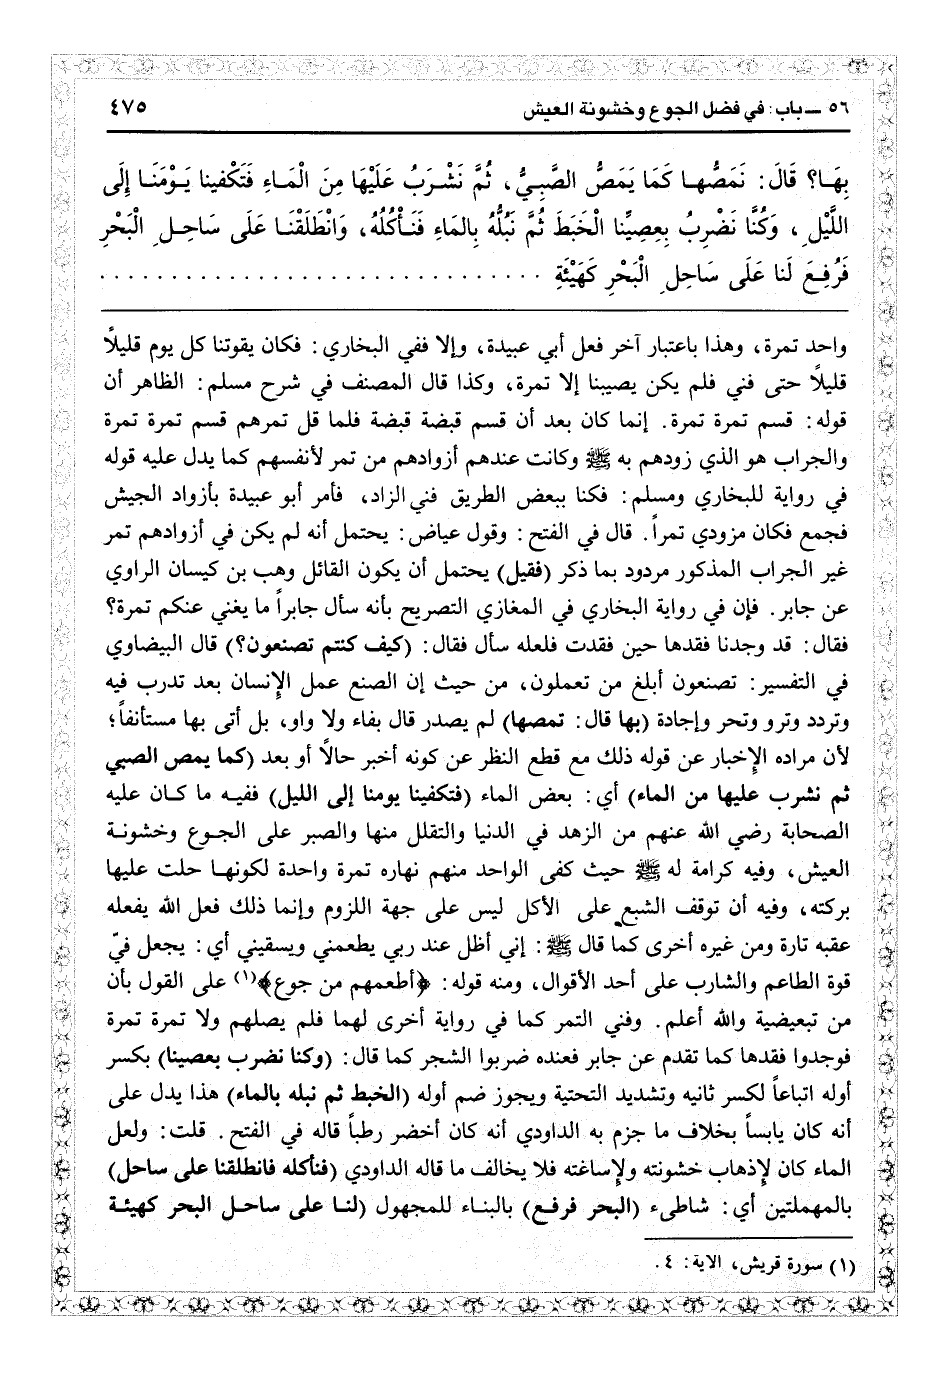 ٥٦ ــ باب: في فضل الجوع وخشونة العيش ٤٧٥
بِهَا؟ قَالَ: نَمَصُّها كَمَا يَمَصُّ الصَّبِيُّ، ثُمَّ نَشْرَبُ عَلَيْهَا مِنَ الْمَاءِ فَتَكْفينا يَوْمَنَا إلَى
اللَّيْلِ، وَكُنَّا نَضْرِبُ بِعِصِيِّنا الْخَبَطَ ثُمَّ نَبُلُّهُ بِالمَاءِ فَنَأْكُلُهُ، وَانْطَلَقْنَا عَلَى سَاحِلِ الْبَحْرِ
فَرُفِعَ لَنا عَلَى سَاحِلِ الْبَحْرِ كَهَيْئَةِ ................................
واحد تمرة، وهذا باعتبار آخر فعل أبي عبيدة، وإلا ففي البخاري: فكان يقوتنا كل يوم قليلاً
قليلاً حتى فني فلم يكن يصيبنا إلا تمرة، وكذا قال المصنف في شرح مسلم: الظاهر أن
قوله: قسم تمرة تمرة. إنما كان بعد أن قسم قبضة قبضة فلما قل تمرهم قسم تمرة تمرة
والجراب هو الذي زودهم به ﷺ وكانت عندهم أزوادهم من تمر لأنفسهم كما يدل عليه قوله
في رواية للبخاري ومسلم: فكنا ببعض الطريق فني الزاد، فأمر أبو عبيدة بأزواد الجيش
فجمع فكان مزودي تمراً. قال في الفتح: وقول عياض: يحتمل أنه لم يكن في أزوادهم تمر
غير الجراب المذكور مردود بما ذكر (فقيل) يحتمل أن يكون القائل وهب بن كيسان الراوي
عن جابر. فإن في رواية البخاري في المغازي التصريح بأنه سأل جابراً ما يغني عنكم تمرة؟
فقال: قد وجدنا فقدها حين فقدت فلعله سأل فقال: (كيف كنتم تصنعون؟) قال البيضاوي
في التفسير: تصنعون أبلغ من تعملون، من حيث إن الصنع عمل الإنسان بعد تدرب فيه
وتردد وترو وتحر وإجادة (بها قال: تمصها) لم يصدر قال بفاء ولا واو، بل أتى بها مستأنفاً؛
لأن مراده الإخبار عن قوله ذلك مع قطع النظر عن كونه أخبر حالاً أو بعد (كما يمص الصبي
ثم نشرب عليها من الماء) أي: بعض الماء (فتكفينا يومنا إلى الليل) ففيه ما كان عليه
الصحابة رضي الله عنهم من الزهد في الدنيا والتقلل منها والصبر على الجوع وخشونة
العيش، وفيه كرامة له ﷺ حيث كفى الواحد منهم نهاره تمرة واحدة لكونها حلت عليها
بركته، وفيه أن توقف الشبع على الأكل ليس على جهة اللزوم وإنما ذلك فعل الله يفعله
عقبه تارة ومن غيره أخرى كما قال ﷺ: إني أظل عند ربي يطعمني ويسقيني أي: يجعل فيّ
قوة الطاعم والشارب على أحد الأقوال، ومنه قوله: ﴿أطعمهم من جوع﴾(١) على القول بأن
من تبعيضية والله أعلم. وفني التمر كما في رواية أخرى لهما فلم يصلهم ولا تمرة تمرة
فوجدوا فقدها كما تقدم عن جابر فعنده ضربوا الشجر كما قال: (وكنا نضرب بعصينا) بكسر
أوله اتباعاً لكسر ثانيه وتشديد التحتية ويجوز ضم أوله (الخبط ثم نبله بالماء) هذا يدل على
أنه كان يابساً بخلاف ما جزم به الداودي أنه كان أخضر رطباً قاله في الفتح. قلت: ولعل
الماء كان لإذهاب خشونته ولإساغته فلا يخالف ما قاله الداودي (فنأكله فانطلقنا على ساحل)
بالمهملتين أي: شاطىء (البحر فرفع) بالبناء للمجهول (لنا على ساحل البحر كهيئة
(١) سورة قريش، الآية: ٤.